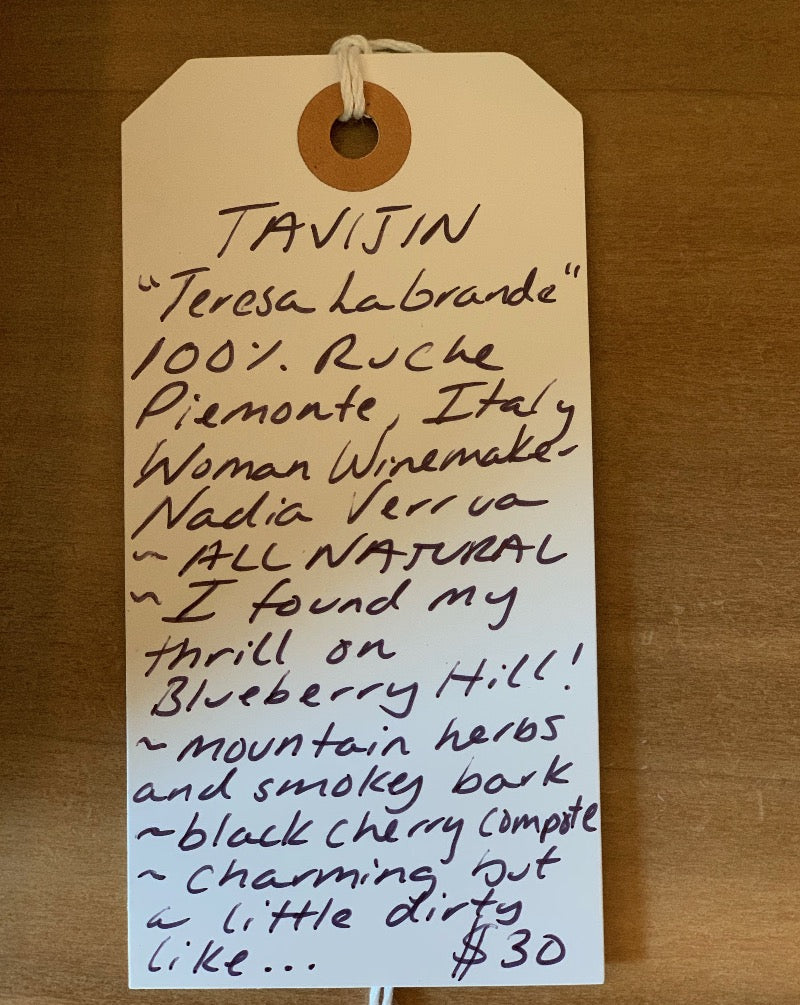 TAVIJIN
"Teresa LaGrande"
100% Ruche
Piemonte, Italy
Woman Winemaker
Nadia Verrua
~ ALL NATURAL
~ I found my
thrill on
Blueberry Hill!
~ mountain herbs
and smokey bark
~ black cherry compote
~ charming but
a little dirty
like... $30